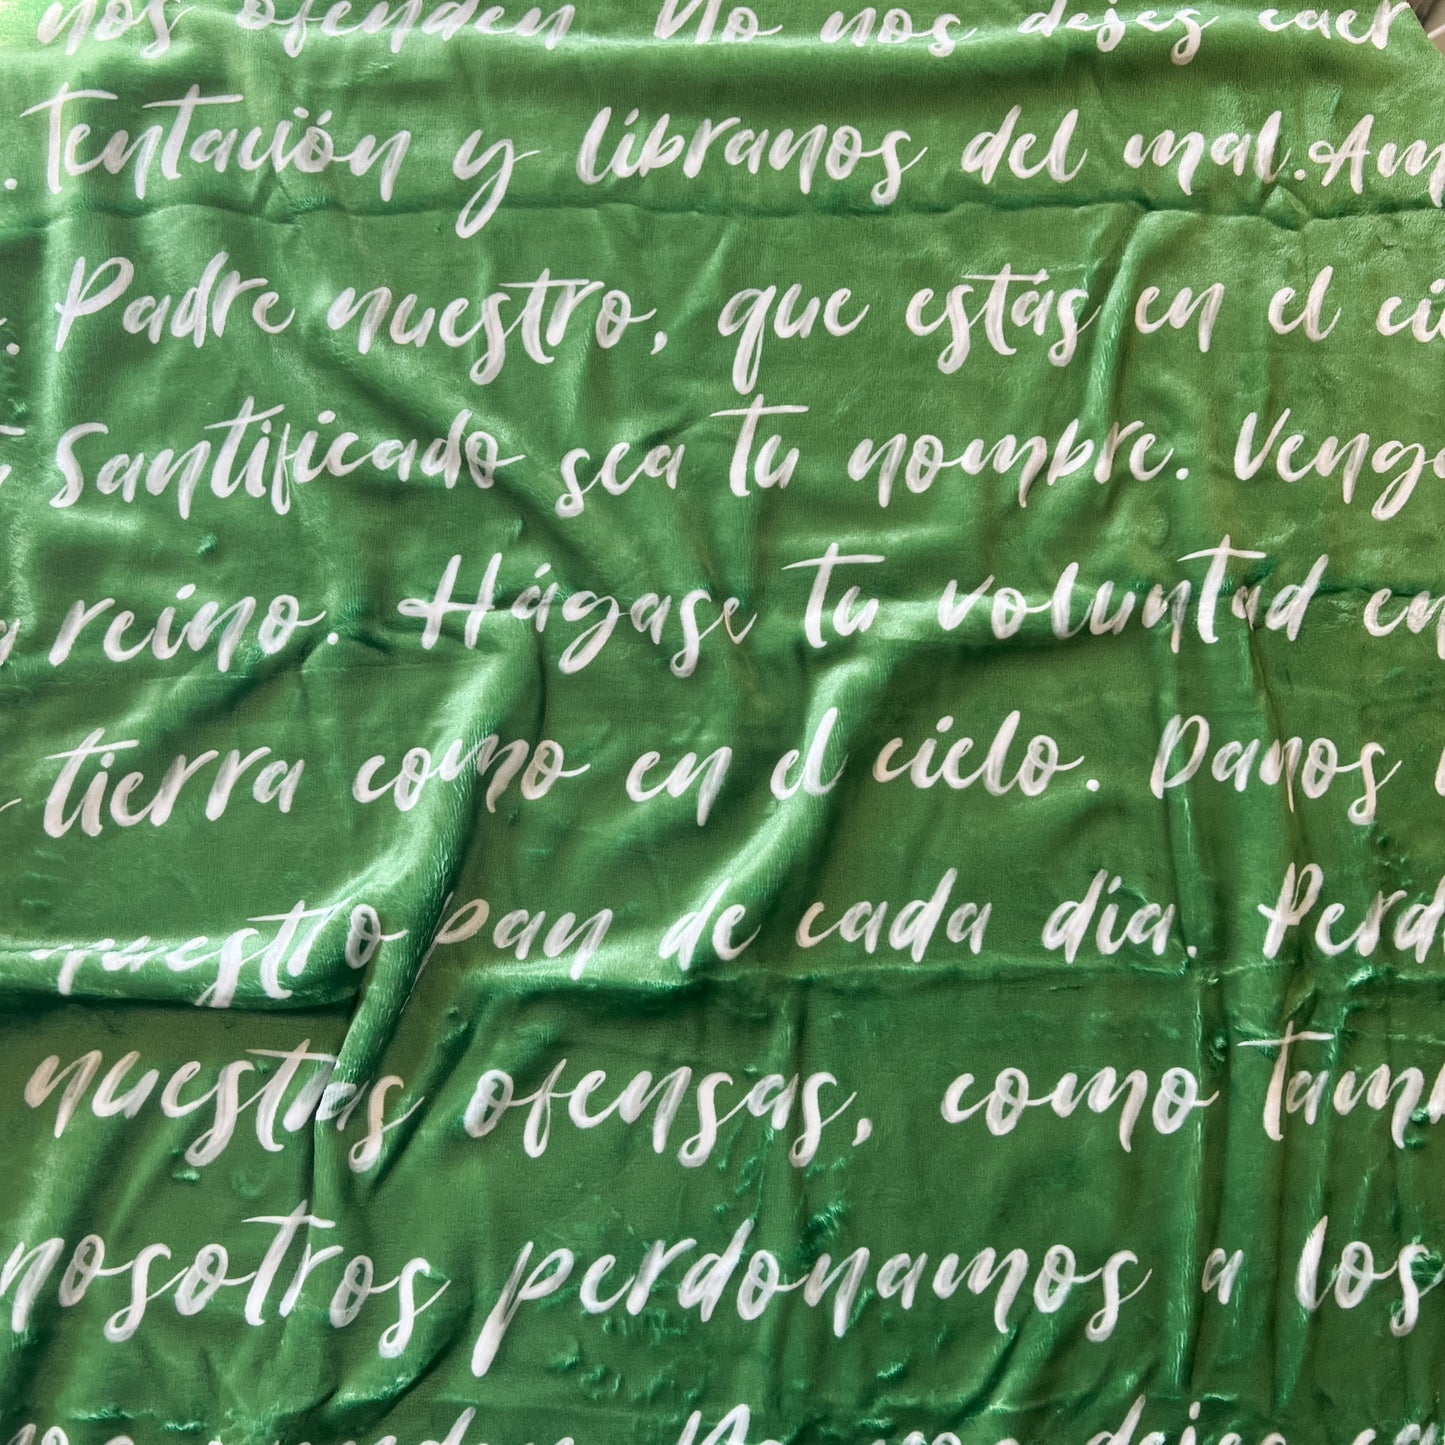 nos ofenden No nos dejes caer
. Tentación y líbranos del mal. Am
. Padre nuestro, que estás en el ci
Santificado sea tu nombre. Venga
reino. Hágase tu voluntad en
tierra como en el cielo. Danos
nuestro pan de cada día. Perd
nuestras ofensas, como tamb
nosotros perdonamos a los
No nos dejes ca